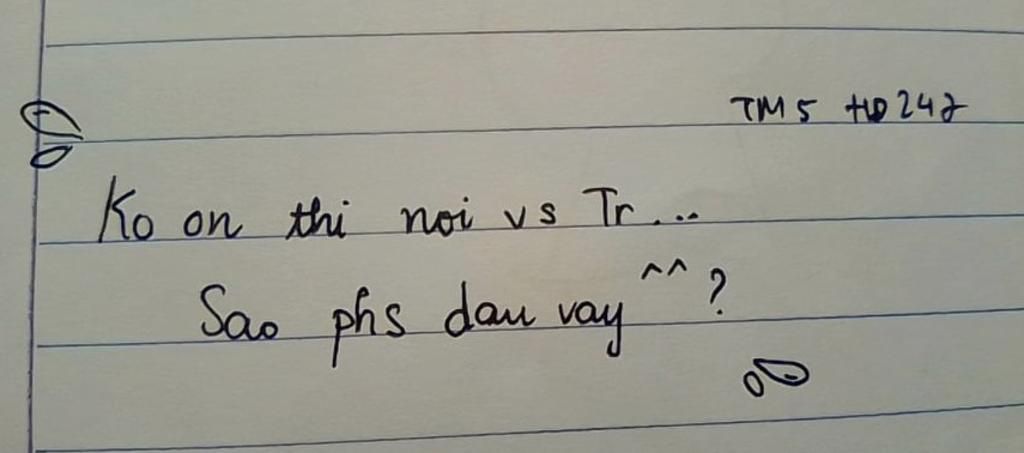 TM5
Ko on thi noi vs Tr...
Sao phs dau vay ^^ ?